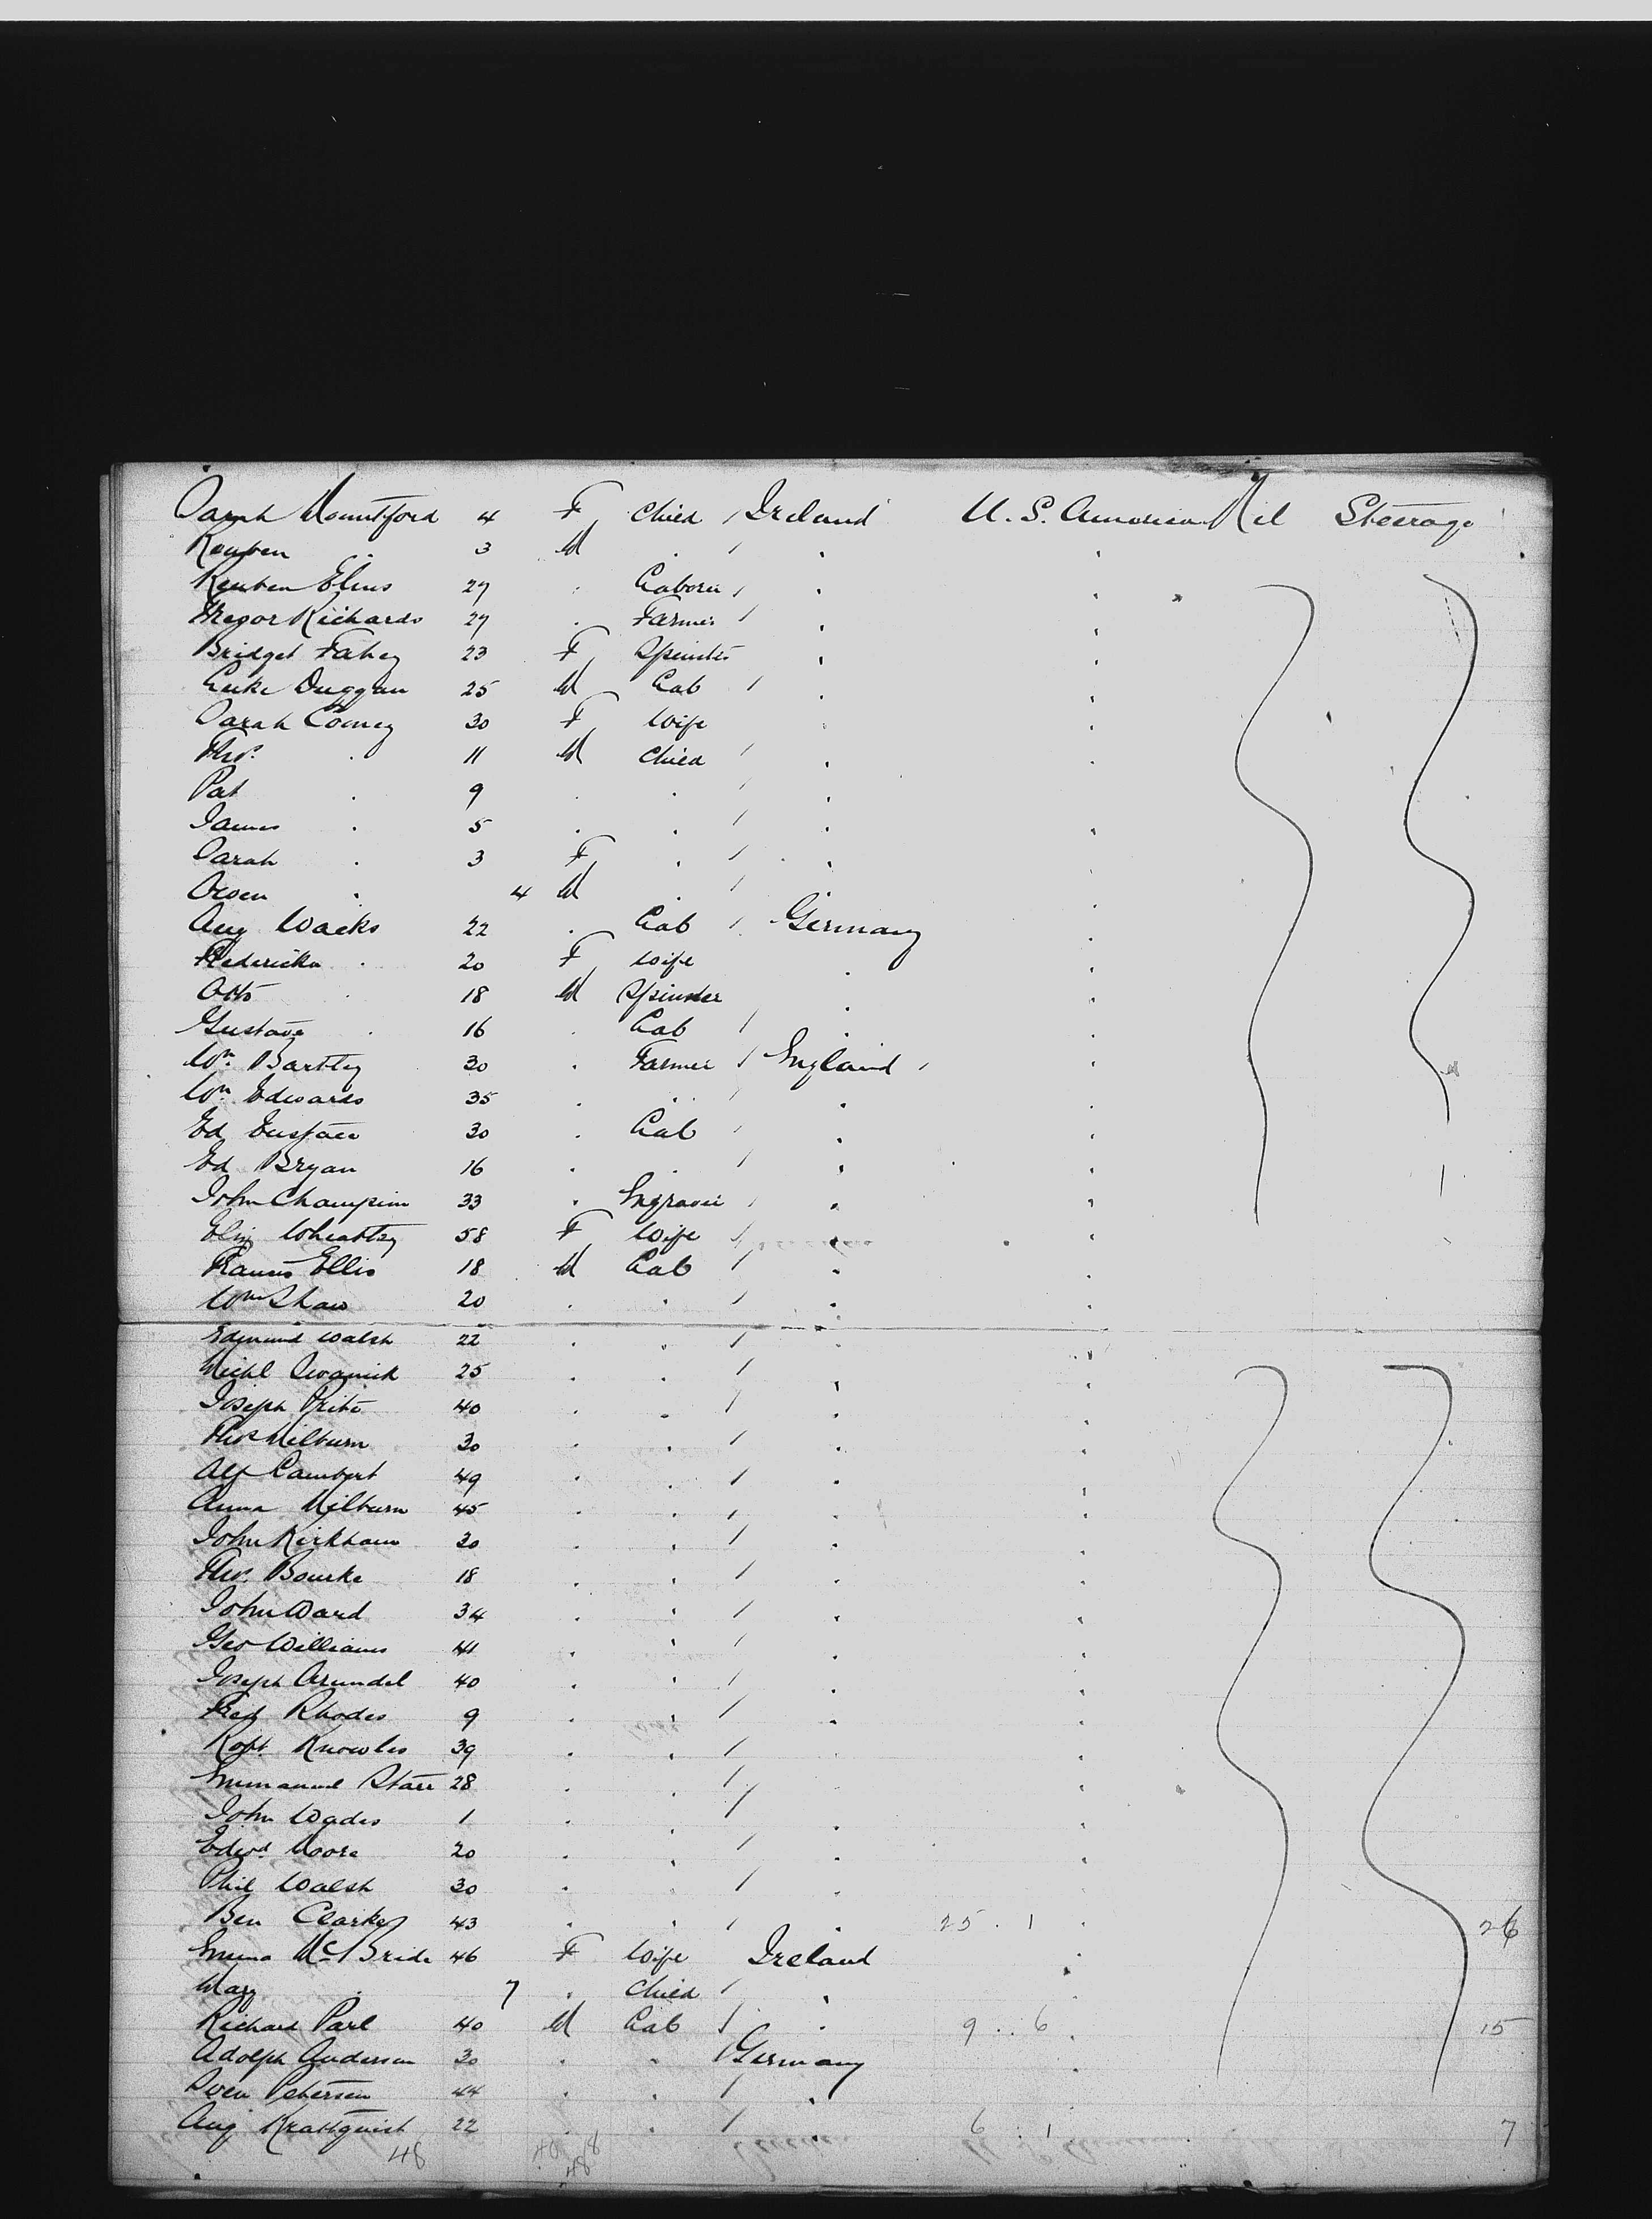 Sarah Mountford 4 F Child / Ireland U.S. America Nil Steerage
Reuben . 3 M . / .
Reuben Elms 27 . Laborer / .
Gregor Richards 27 . Farmer / .
Bridget Fahey 23 F Spinster .
Luke Duggan 25 M Lab / .
Sarah Cooney 30 F Wife .
Thos. . 11 M Child / .
Pat . 9 . . / .
James . 5 . . / .
Sarah . 3 F . / .
Owen . 4 M . /
Aug Wacks 22 . Lab / Germany
Fredericka . 20 F Wife .
Otto . 18 M Spinster .
Gustave . 16 . Lab / .
Wm. Bartley 30 . Farmer / England
Wm. Edwards 35 . . / .
Ed Eustace 30 . Lab / .
Ed Bryan 16 . . / .
John Champion 33 . Engraver / .
Eliz Wheatley 58 F Wife / .
Francis Ellis 18 M Lab / .
Wm Shaw 20 . . / .
Edmund Walsh 22 . . / .
Michl 25 . . / .
Joseph 40 . . / .
Thos Milburn 30 . . / .
Alf Lambert 49 . . / .
Anna Milburn 45 . . / .
John Kirkham 30 . . / .
Thos. Bourke 18 . . / .
John Ward 34 . . / .
Geo Williams 41 . . / .
Joseph Arundel 40 . . / .
Fred Rhodes 9 . . / .
Robt Knowles 39 . . / .
Emmanuel Starr 28 . . / .
John Wades 1 . . / .
Edwd. Moore 20 . . / .
Phil Walsh 30 . . / .
Ben Clarke 43 . . / . 25 . 1 26
Emma McBride 46 F Wife Ireland
Mary . 7 . Child / .
Richard Parl 40 M Lab / . 9 . . 6 15
Adolph Anderson 30 . . / Germany
Sven Petersen 44 . . / .
Aug Krattquist 22 . . / . 6 . 1 7
48 40 8
48